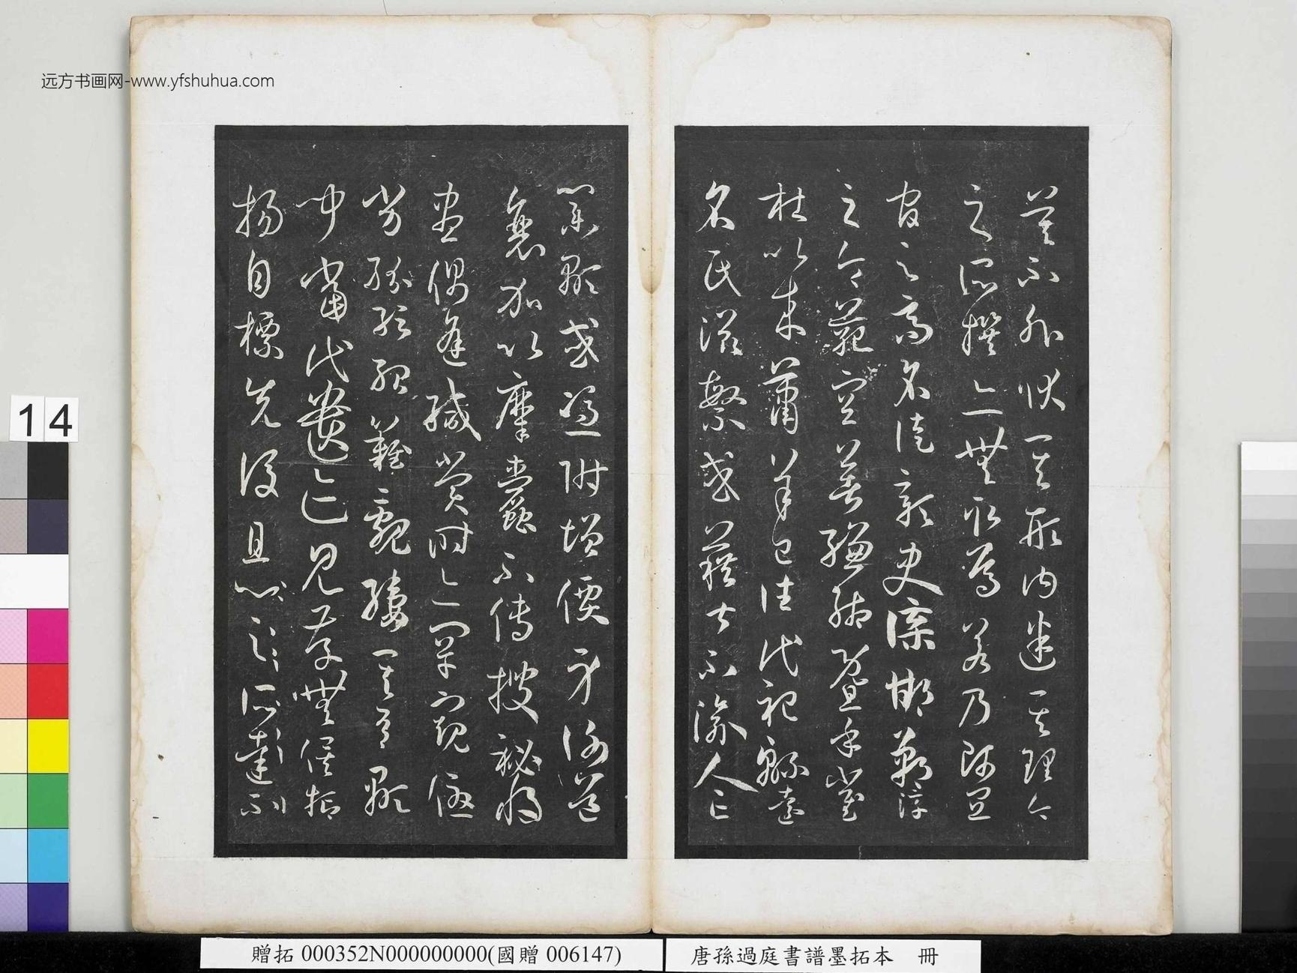 远方书画网-www.yfshuhua.com
莫不外狀其形內迷其理今
之所撰亦無取焉若乃師宜
官之高名徒彰史牒邯鄲淳
之令範空著縑緗暨乎崔
杜以來蕭羊已往代祀綿遠
名氏滋繁或藉甚不渝人亡
業顯或憑附增價身謝道
衰加以糜蠹不傳搜秘將
盡偶逢緘賞時亦罕窺優
劣紛紜殆難覼縷其有顯
聞當代遺跡見存無俟抑
揚自標先後且心之所達不
14
贈拓 000352N000000000(國贈 006147)
唐孫過庭書譜墨拓本 冊